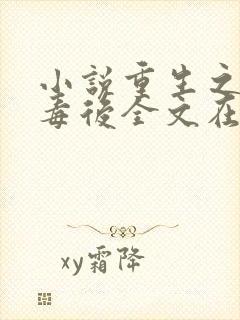 小说重生之
毒後全文在
xy霜降